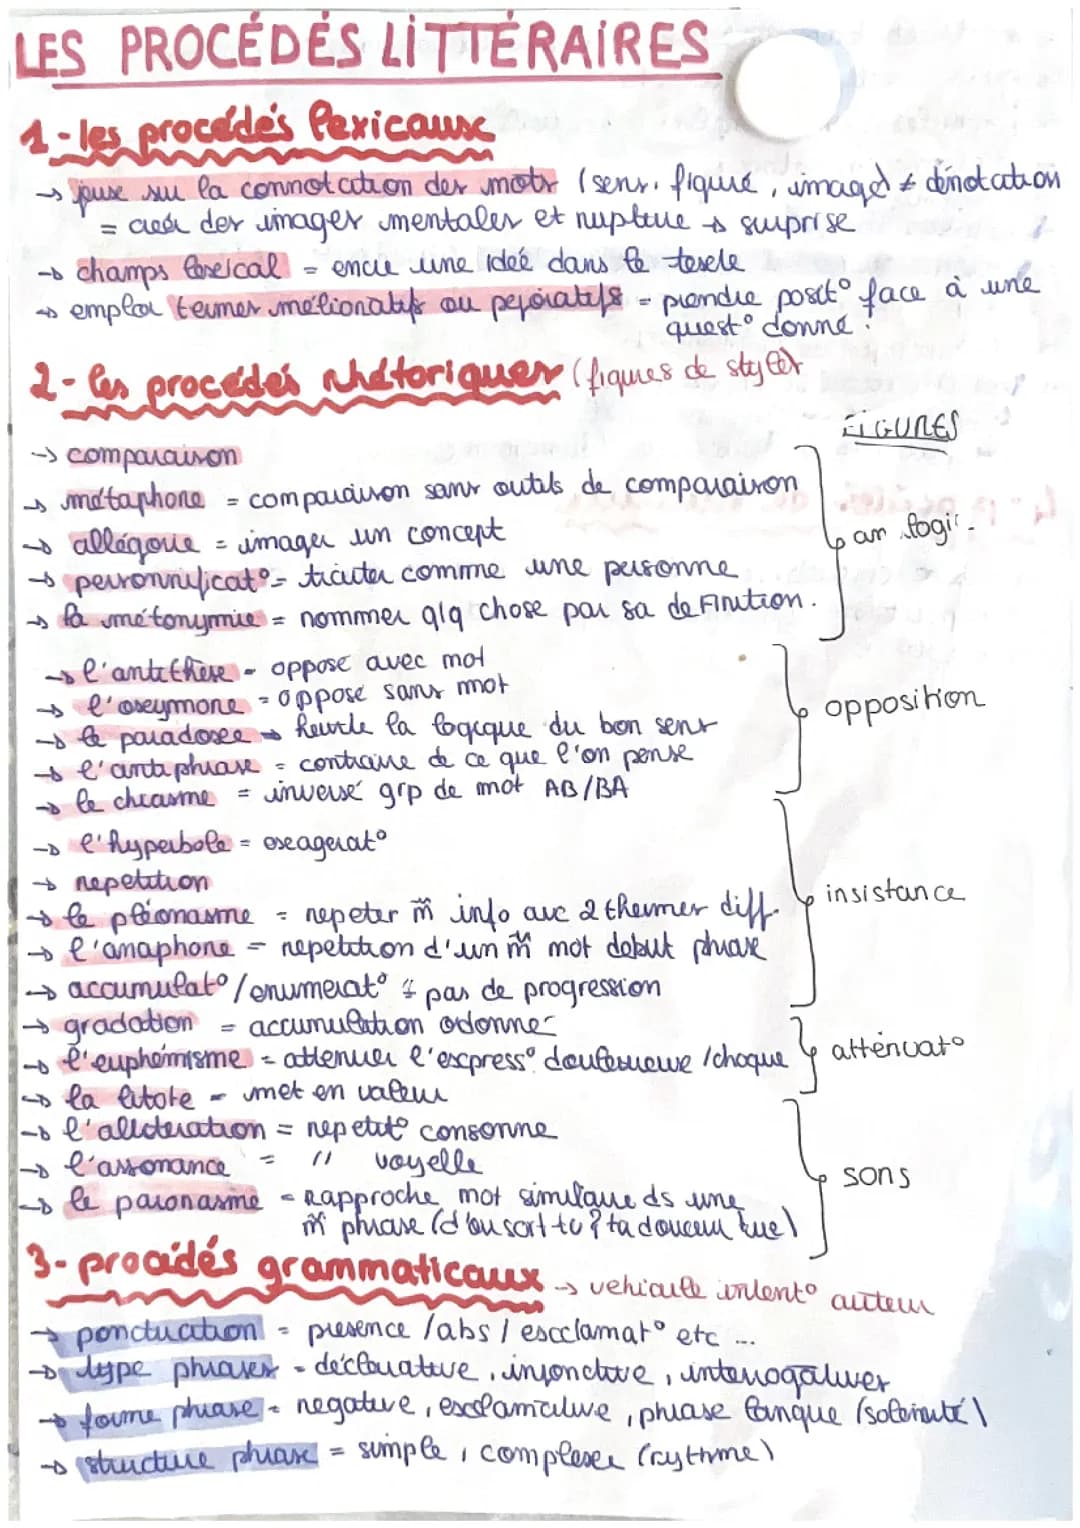 LES PROCÉDÉS LITTÉRAIRES
1 - les procédés lexicaux
→ jeux su la connotation des mots (sens. figuré, imagé ≠ dénotation
= creér des images mentales et rupture → surprise
→ champs lexical = encre une idée dans le texte
→ emploi termes mélioratifs ou pejoratifs = prendre posit° face à une
quest° donné.
2 - les procédés rhétoriques (figures de style)
FIGURES
→ comparaison
→ métaphore = comparaison sans outils de comparaison
→ allégorie = imager un concept
an logi
→ personnificat° = traiter comme une personne
→ la métonymie = nommer qlq chose par sa definition.
→ l'antithèse - oppose avec mot
→ l'oxymore = oppose sans mot
opposition
→ le paradoxe → heurte la logique du bon sens
→ l'antiphrase = contraire de ce que l'on pense
→ le chiasme = inversé grp de mot AB/BA
→ l'hyperbole = exagerat°
→ repetition
insistance
→ le pléonasme = repeter m̂ info avc 2 thermes diff.
→ l'anaphore = repetition d'un m̂ mot debut phrase
→ accumulat°/enumerat° ≠ pas de progression
→ gradation = accumulation odonné
→ l'euphémisme = attenuer l'express° douloureuse /choque
atténuat°
→ la litote - met en valeur
→ l'allitération = repetit° consonne
→ l'assonance = " voyelle
sons
→ le paronasme - Rapproche mot similaire ds une
m̂ phrase (d'ou sort tu? ta douceur tue)
3 - procédés grammaticaux → vehicule intent° auteur
→ ponctuation = presence /abs / escclamat° etc ...
→ type phrases - déclarative, injonctive, interrogatives
→ forme phrase = negative, exclamative, phrase longue (solenité)
→ structure phrase = simple, complexe (rythme)